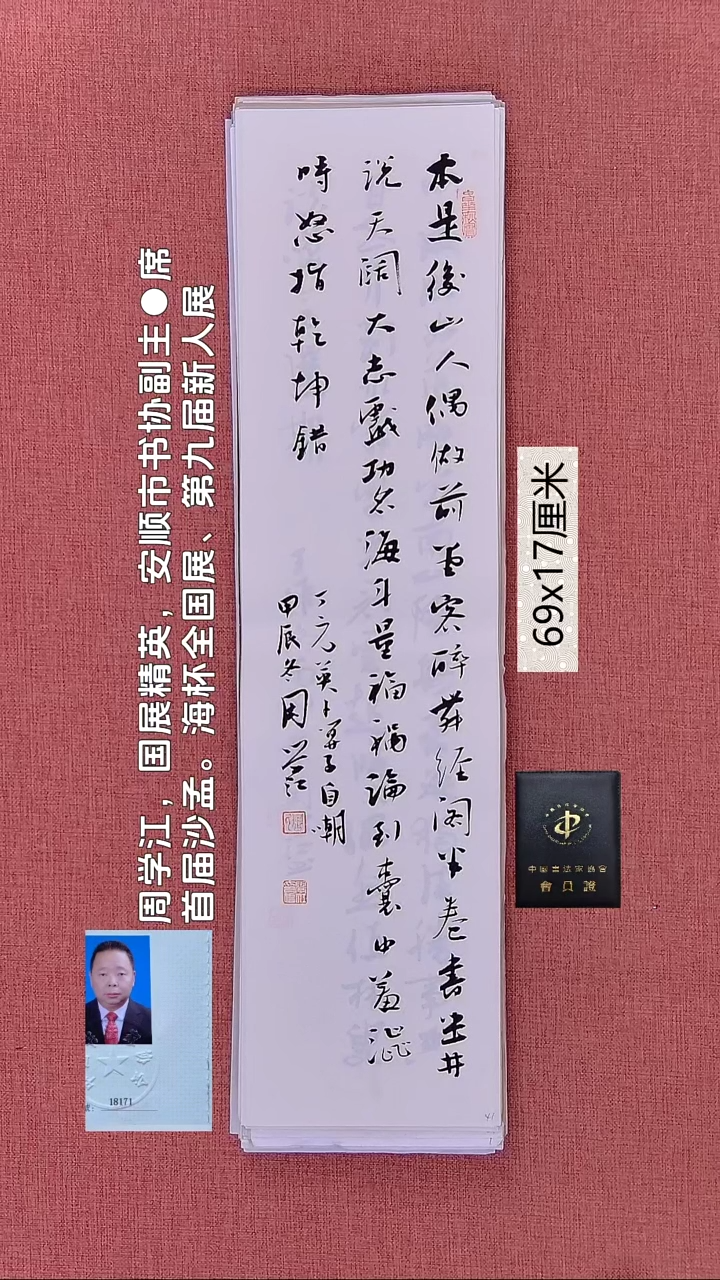 本是後山人偶做前堂客醉舞經閣半卷書坐井
説天闊大志戲功名海斗量福禍論到囊中羞澀
時怒指乾坤錯
丁元英卜算子自嘲
甲辰冬周學江
周学江，国展精英，安顺市书协副主●席
首届沙孟。海杯全国展、第九届新人展
69x17厘米
會員證
18171